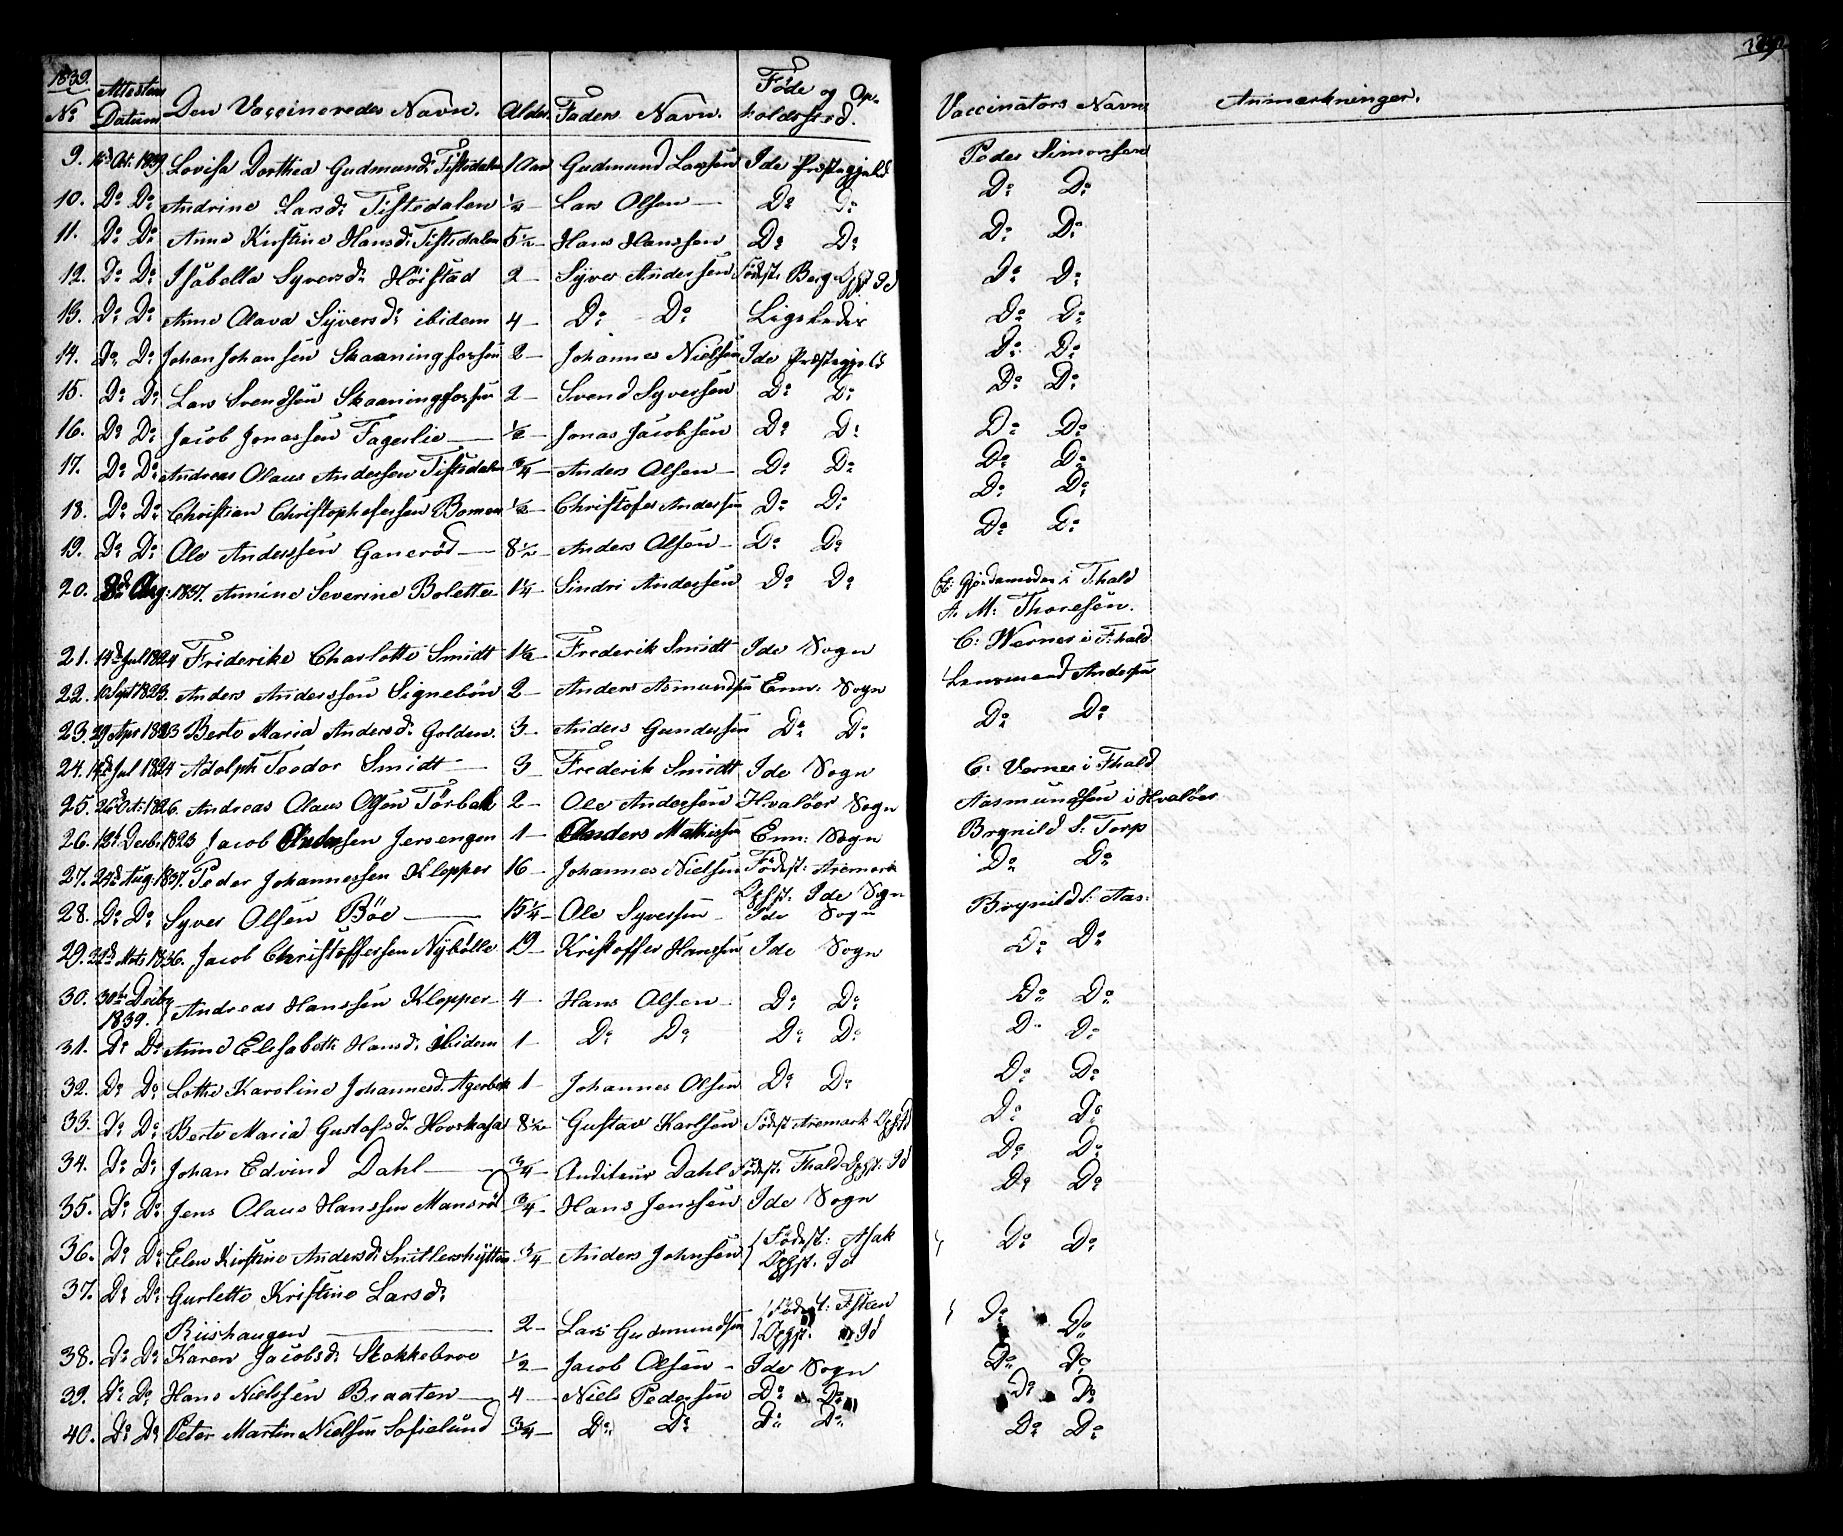 1839.
No Attestens Datum Den Vaccineredes Navn. Alder Faders Navn. Føde og Op-holdssted. Vaccinators Navn Anmærkninger.
9. 16de Oct: 1839 Lovisa Dorthea Gudmundsd: Tistedalen 1 Aar Gudmund Larssen Ide Præstegjeld Peder Simonsen
10. Do Do Andrine Larsd: Tistedalen ½ – Lars Olsen – Do Do Do Do
11. Do Do Anne Kirstine Hansd: Tistedalen 5½ – Hans Hanssen Do Do Do Do
12. Do Do Isabella Syversd: Höistad 2 – Syver Anderssen Födest: Berg Ophst Id Do Do
13. Do Do Anne Olava Syversd: ibidem 4 – Do Do Ligeledes Do Do
14. Do Do Johan Johansen Skaaningfossen 2 – Johannes Nielssen Ide Præstegjeld Do Do
15. Do Do Lars Svendsen Skaaningfossen 2 – Svend Syverssen Do Do Do Do
16. Do Do Jacob Jonassen Fagerlie – ½ – Jonas Jacobsen Do Do Do Do
17. Do Do Andreas Olaus Anderssen Tistedalen ¾ – Anders Olsen – Do Do Do Do
18. Do Do Christian Christophersen Bomen ½ – Christofer Anderssen Do Do Do Do
19. Do Do Ole Anderssen Ganeröd – 8½ – Anders Olsen – Do Do Do Do
20. Aug: 1837. Annine Severine Bolette 1¼ – Sindri Anderssen Do Do Gjordemoder i F:hald
A. M: Thoresen.
21. 14de Jul 1824 Friderike Charlotte Smidt 1½ – Frederik Smidt Ide Sogn C: Werner i F:hald
22. 10 Sept 1823. Anders Anderssen Signebøn 2 – Anders Asmundsen Enn: Sogn Lensmand Anderssen
23. 29 Apr 1823 Berte Maria Andersd: Golden. 3 – Anders Gunderssen Do Do Do Do
24. 14de Jul 1824 Adolph Teodor Smidt – 3 – Frederik Smidt Ide Sogn C: Verner i Fhald
25. 26de Oct: 1826. Andreas Olaus Olsen Törbak 2 – Ole Anderssen Hvaløer Sogn Aasmundsen i Hvaløer
26. 13de Decb. 1823 Jacob Andersen Jersengen 1 – Anders Mathissen Enn: Sogn Brynild S: Torp
27. 24de Aug. 1837. Peder Johannessen Klepper 16 – Johannes Nielsen Födest: Aremark Do Do
Ophst: Ide Sogn
28. Do Do Syver Olsen Böe – 15¼ – Ole Syverssen – Ide Sogn Brynild S: Aas:
29. 22de Mrts 1836. Jacob Christoffersen Nybölle 19 – Kristoffer Hanssen Ide Sogn Do Do
30. 30te Decbr 1839. Andreas Hanssen Klepper – 4 – Hans Olsen – Do Do Do Do
31. Do Do Anne Elisabeth Hansd: Ibidem 1 – Do Do Do Do Do Do
32. Do Do Lothe Karoline Johannesd. Agerbek 1 – Johannes Olsen Do Do Do Do
33. Do Do Berte Maria Gustafsd: 8½ – Gustav Karlsen Födest Aremark Ophst Id Do Do
34. Do Do Johan Edvind Dahl – ¾ – Auditeur Dahl Födest: Fhald Ophst: Id Do Do
35. Do Do Jens Olaus Hanssen Mansröd ¾ – Hans Jenssen Ide Sogn Do Do
36. Do Do Elen Kirstine Andersd: Snitlershytten ¾ – Anders Johnsen Födest: Asak Do Do
Ophst. Id
37. Do Do Gurlette Kristine Larsd:
Riishaugen – 2 – Lars Gudmundsen Ophst. Id Do Do
38. Do Do Karen Jacobsd: Stokkebroe ½ – Jacob Olsen – Ide Sogn Do Do
39. Do Do Hans Nielssen Braaten – 4 – Niels Pederssen Do Do Do Do
40. Do Do Peter Martin Nielsen Sofielund ¾ – Do Do Do Do Do Do